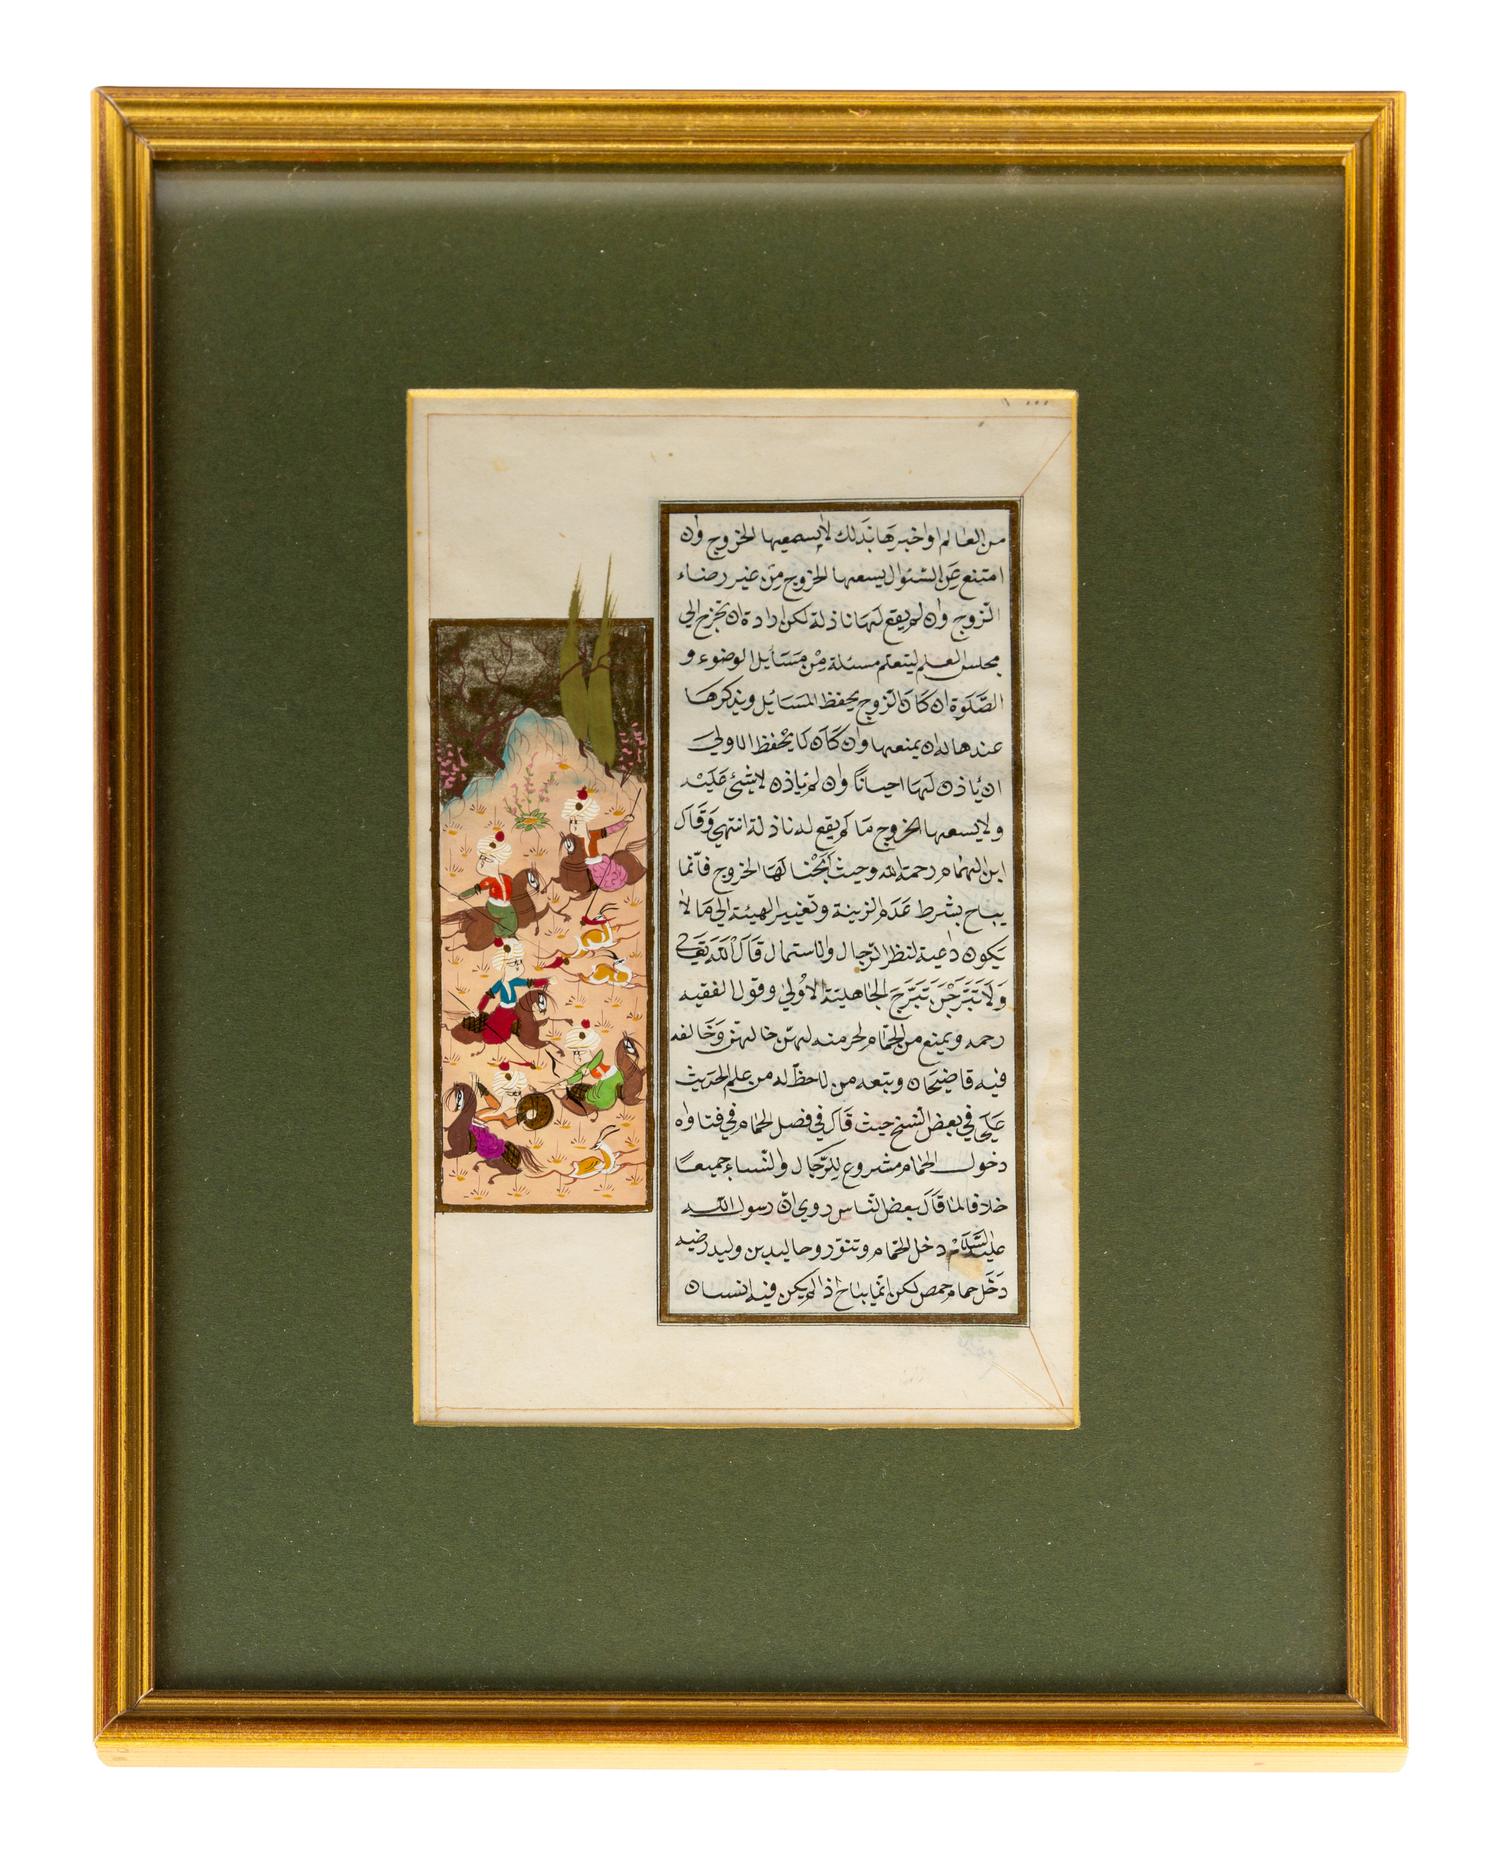 من العالم او اخبرها بذلك لا يسمعها الخروج وان
امتنع عن السئوال يسعها الخروج من غير رضاء
الزوج وان لم يقع لها نازلة لكن ارادة ان تخرج الى
مجلس العلم ليتعلم مسئلة من مسايل الوضوء و
الصلوة ان كان الزوج يحفظ المسايل ويذكرها
عندها له ان يمنعها وان كان لا يحفظ الاولى
ان ياذن لها احيانا وان لم ياذن لا شئ عليه
ولا يسعها الخروج ما لم يقع له نازلة انتهى وقال
ابن الهمام رحمة الله وحيث ابحنا لها الخروج فانما
يباح بشرط عدم الزينة وتغيير الهيئة الى ما لا
يكون داعية لنظر الرجال والاستمال قال الله تعالى
وَلَا تَبَرَّجْنَ تَبَرُّجَ الجاهلية الاولى وقول الفقيه
رحمه ويمنع من الحمام لحرمته لهن خالهن وخالفه
فيه قاضيخان وبتعه من لاحظ له من علم الحديث
على في بعض النسخ حيث قال في فصل الحمام في فتاواه
دخول الحمام مشروع للرجال والنساء جميعا
خلافا لما قال بعض الناس روى ان رسول الله
عليه السلام دخل الحمام وتنور وخاليد بن وليد رضيه
دخل حمام حمص لكن انما يباح اذا لم يكن فيه انسان